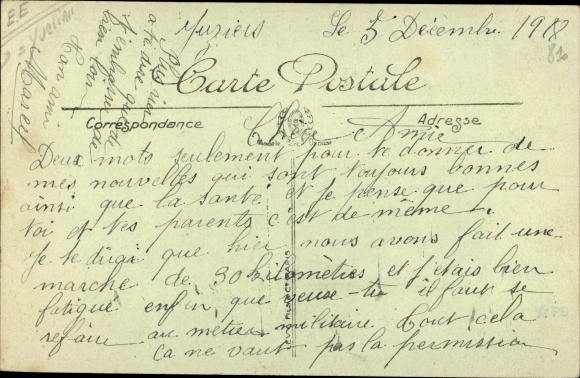 Juziers Le 5 Décembre 1918
Carte Postale
Correspondance Adresse
Chère Amie
Deux mots seulement pour te donner de
mes nouvelles qui sont toujours bonnes
ainsi que la santé et je pense que pour
toi et tes parents c'est de même.
Je te dirai que hier nous avons fait une
marche de 30 kilomètres et j'étais bien
fatigué enfin que veux-tu il faut se
refaire au métier militaire. Tout cela
ça ne vaut pas la permission
Plus rien
à te dire que de
t'embrasser de
bien loin
Ton ami
Marcel
EE